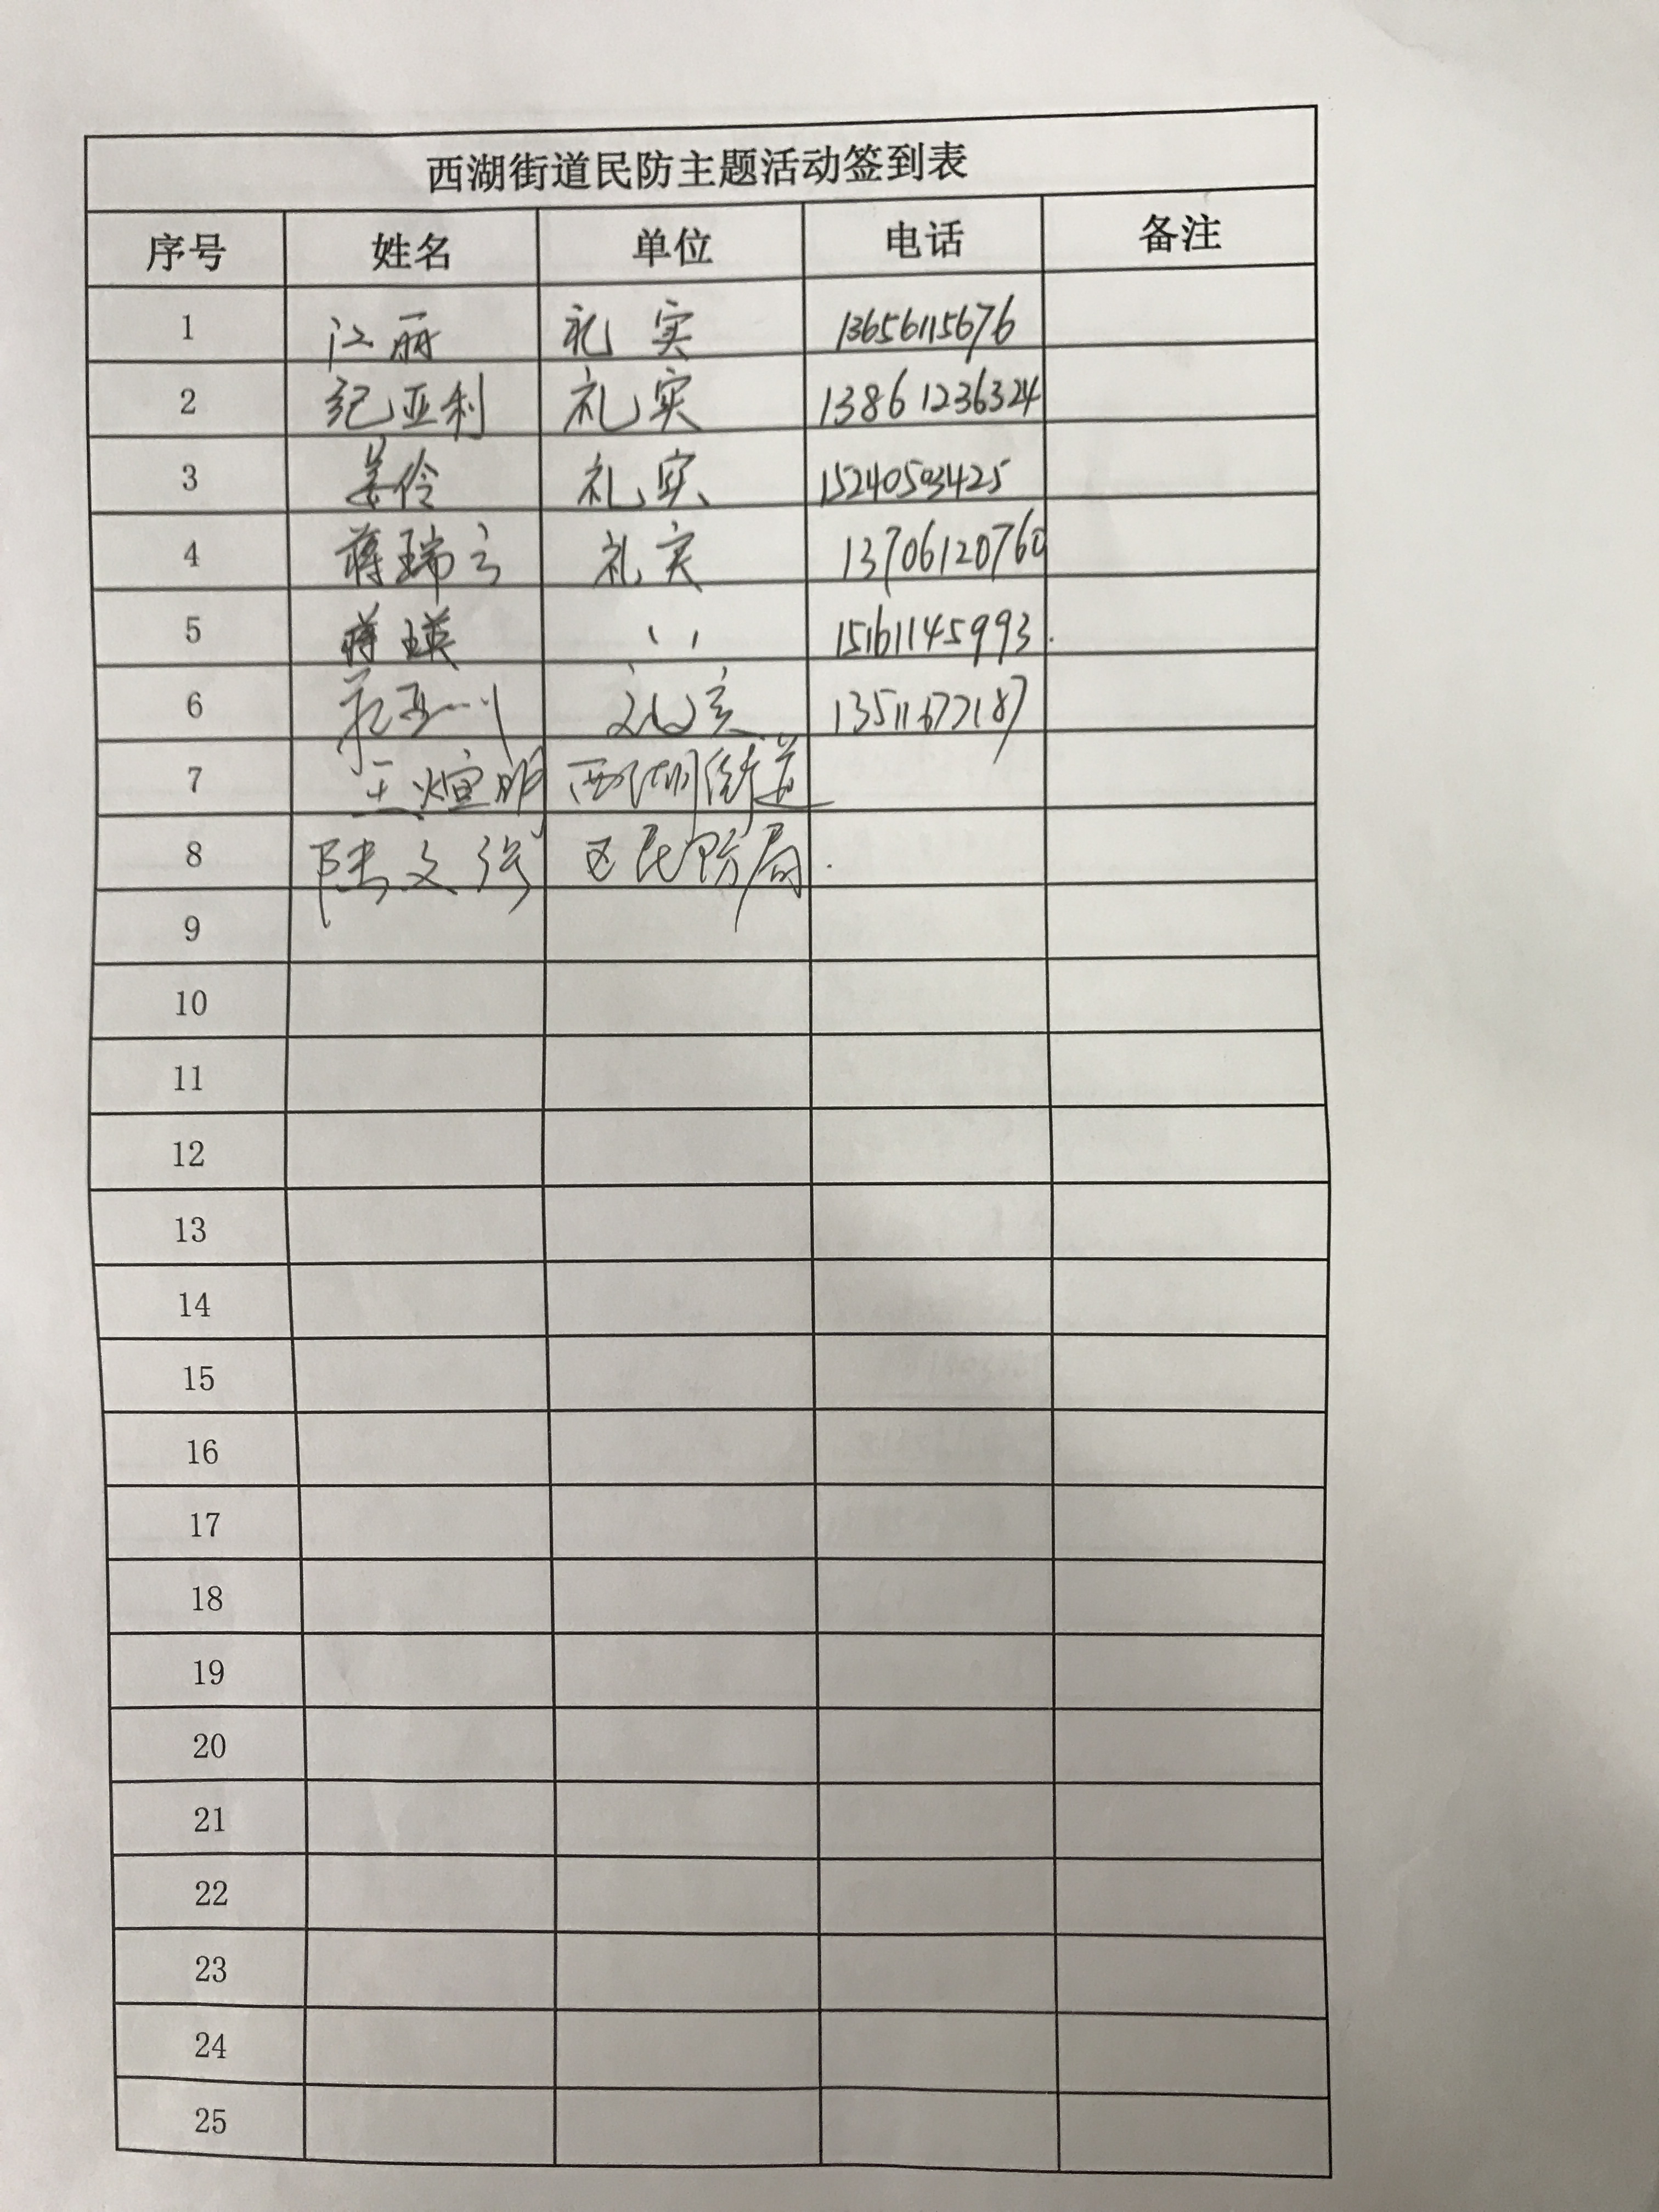 西湖街道民防主题活动签到表
序号 姓名 单位 电话 备注
1 江丽 礼实 13656115676
2 纪亚利 礼实 13861236324
3 姜伶 礼实 15240503425
4 蒋瑞云 礼实 13706120760
5 蒋瑛 、、 15161145993.
6 礼实 13511677187
7 王煊明 西湖街道
8 陆文强 区民防局.
9
10
11
12
13
14
15
16
17
18
19
20
21
22
23
24
25